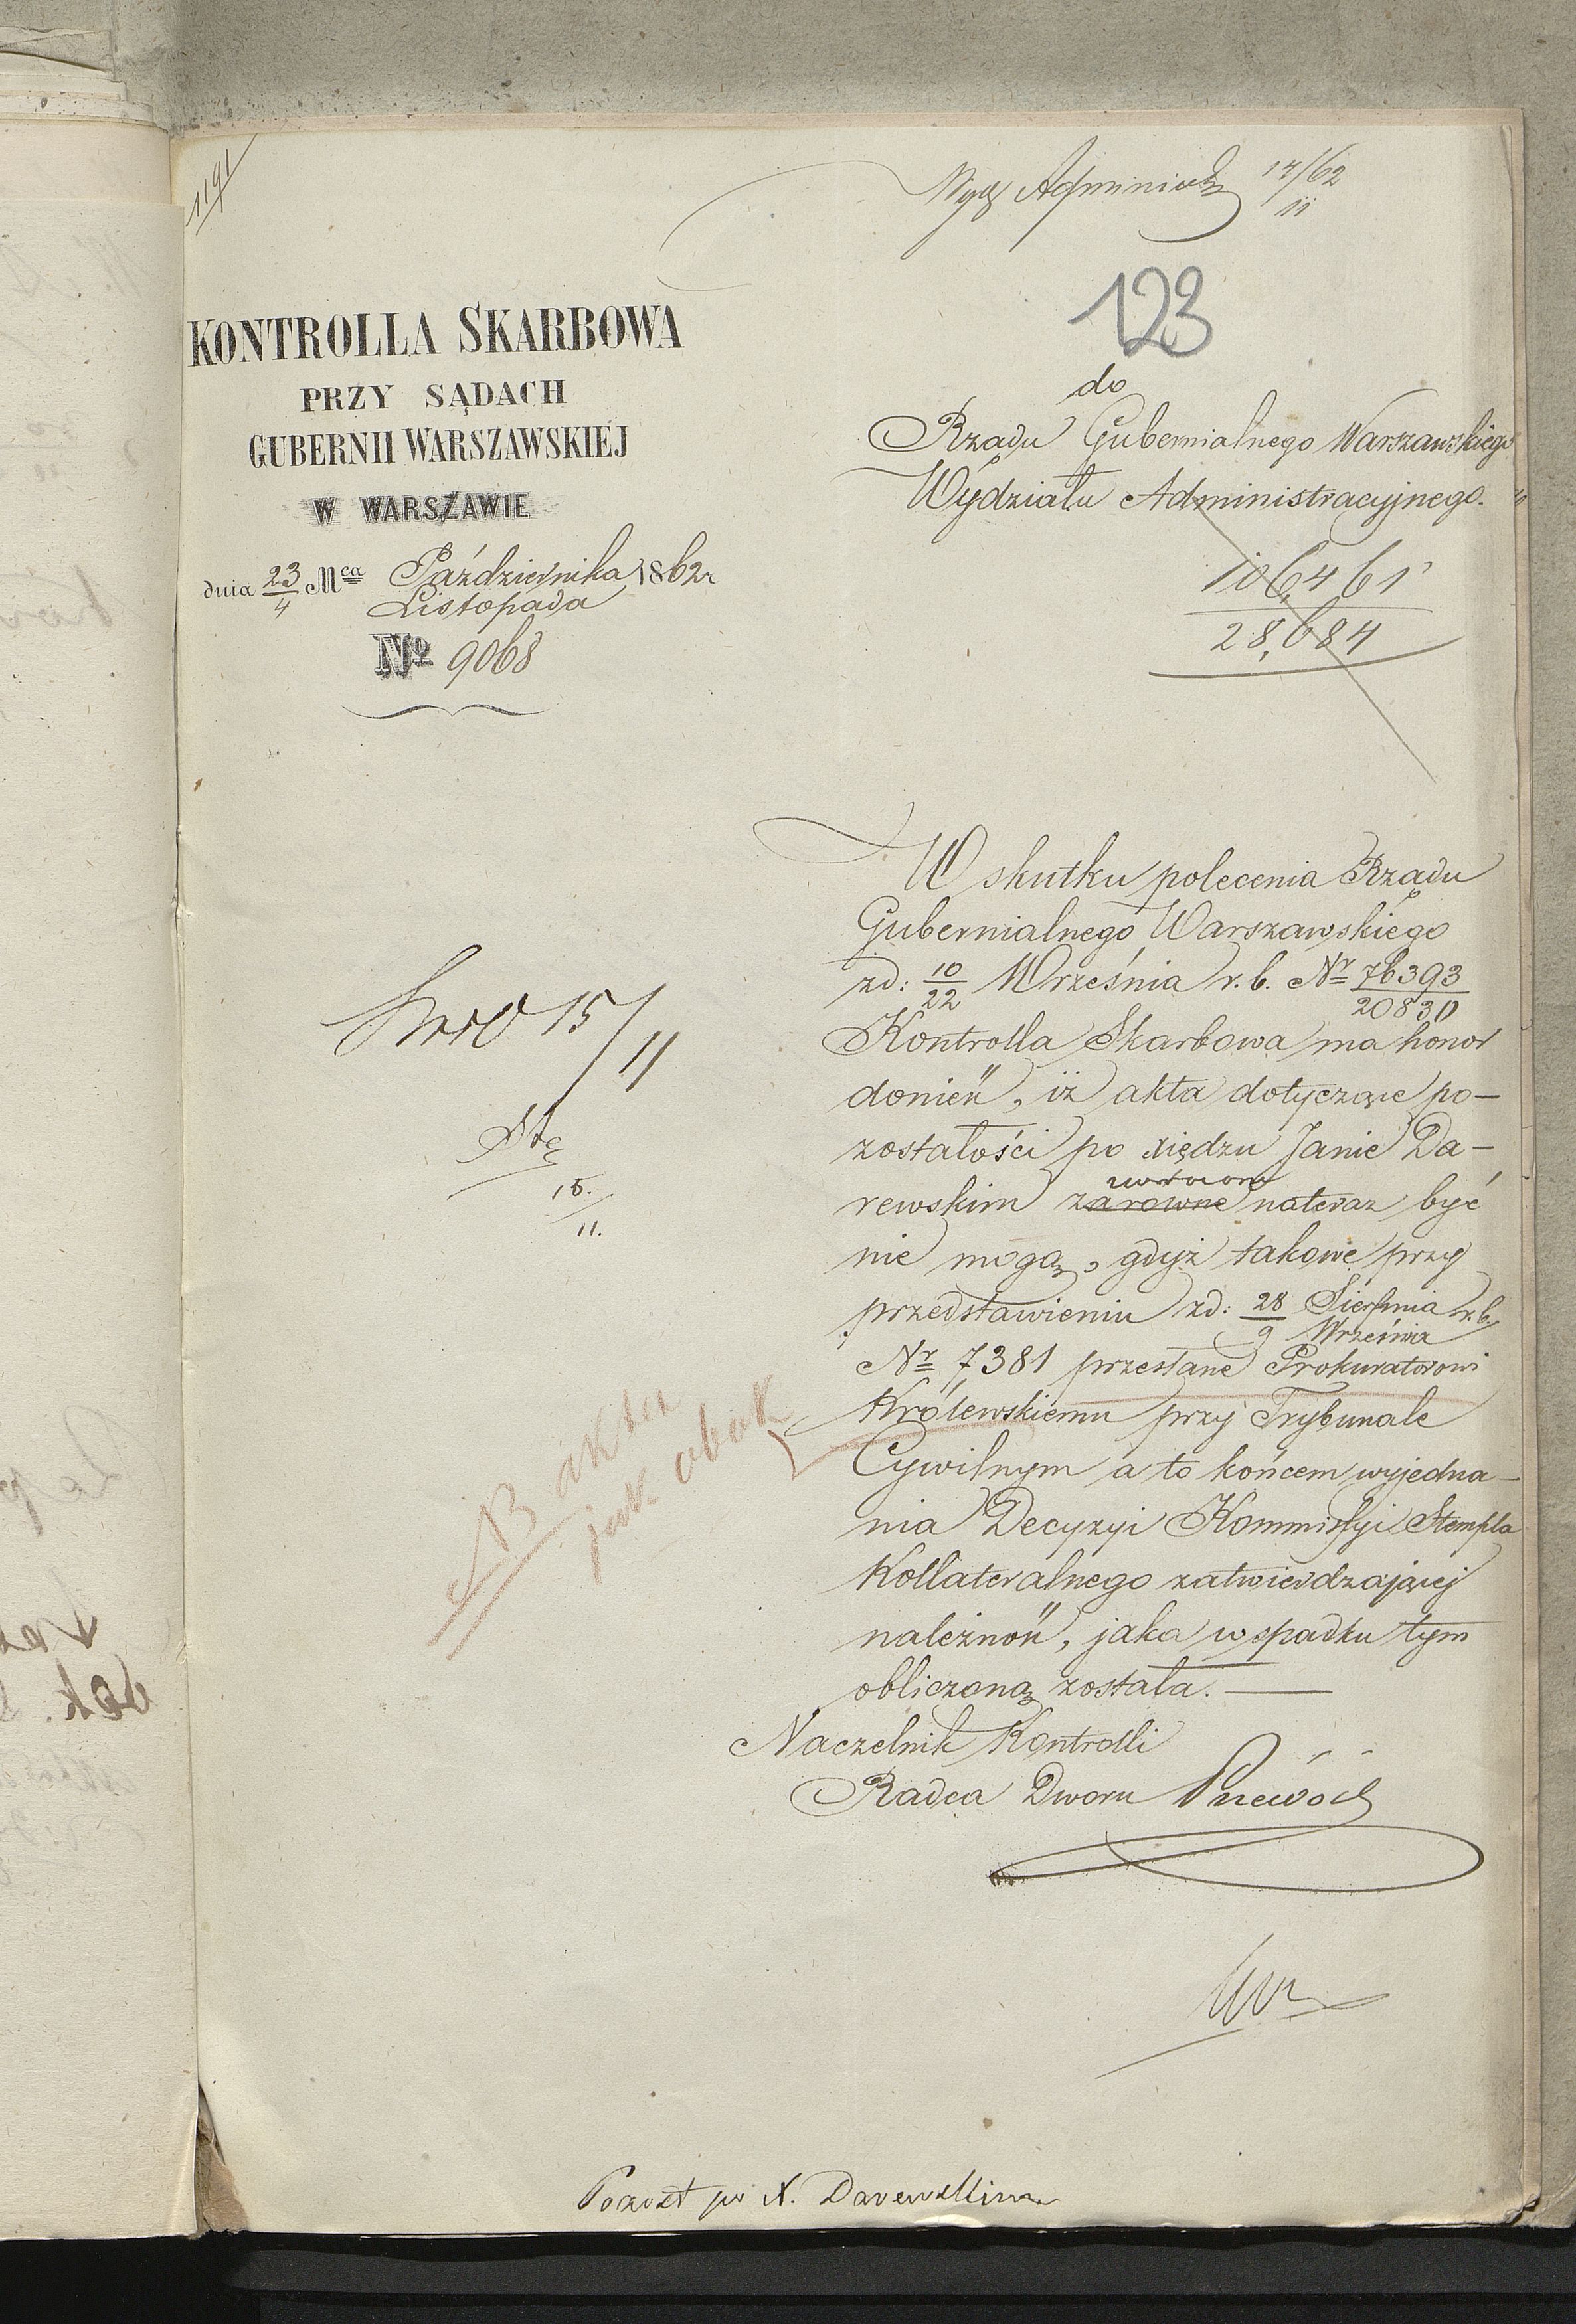 1191
14/62
11
123
KONTROLLA SKARBOWA
PRZY SĄDACH
GUBERNII WARSZAWSKIEJ
W WARSZAWIE
dnia 23/4 Mca Października/Listopada 1862r
No 9068
do
Rządu Gubernialnego Warszawskiego
Wydziału Administracyjnego.
106,461
28,684
W skutku polecenia Rządu
Gubernialnego Warszawskiego
zd: 10/22 Września r.b. Nr 76393/20830
Kontrolla Skarbowa ma honor
donieść, iż akta dotyczące po-
zostałości po xiędzu Janie Da-
rewskim zwrócone nateraz być
nie mogą, gdyż takowe przy
przedstawieniu zd: 28 Sierpnia/9 Września r.b.
Nr 7381 przesłane Prokuratorowi
Królewskiemu przy Trybunale
Cywilnym a to końcem wyjedna-
nia Decyzyi Kommissyi Stempla
Kollateralnego zatwierdzającej
należność, jaka w spadku tym
obliczoną została.
Naczelnik Kontrolli
Radca Dworu
15/11
15.
11.
NB akta
jak obok
Pozost po X. Darewskim